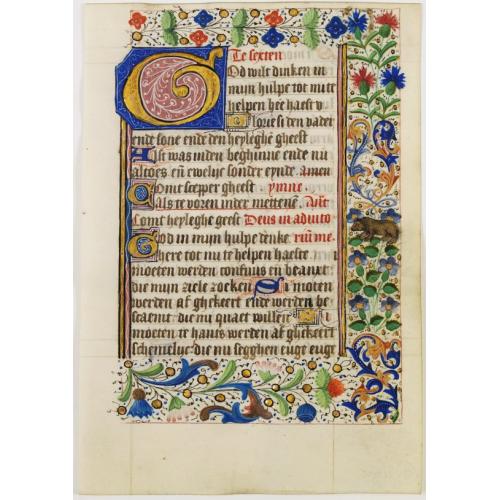 Te sexten
God wilt dinken in
mijn hulpe tot mi te
helpen hēe haest v
Glorie si den vader
ende sone ende den heyleghe gheest
Alst was inden beghinne ende nu
altoes eñ ewelijc sonder eynde. amen
Comt scepper gheest ymne.
Als te voren inder mettenē. Añt
Comt heyleghe geest Deus in adiuto
God in mijn hulpe denke. riū me
here tot mi te helpen haeste
moeten werden confuus eñ beanxt:
die mijn ziele zoeken Si moten
werden af ghekeert ende werden be
scaemt. die mi quaet willen Si
moeten te hants werden af ghekeert
schemelijc die mi segghen euge euge